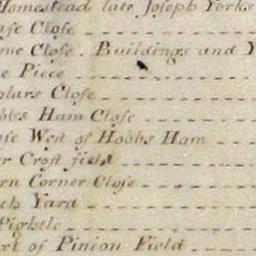 Homestead late Joseph Yorks
Close
Close. Buildings and Y
Piece
plars Close
bbs Ham Close
ose West of Hobbs Ham
r Croft field
rn Corner Close
ch Yard
Pightle
art of Pinion Field